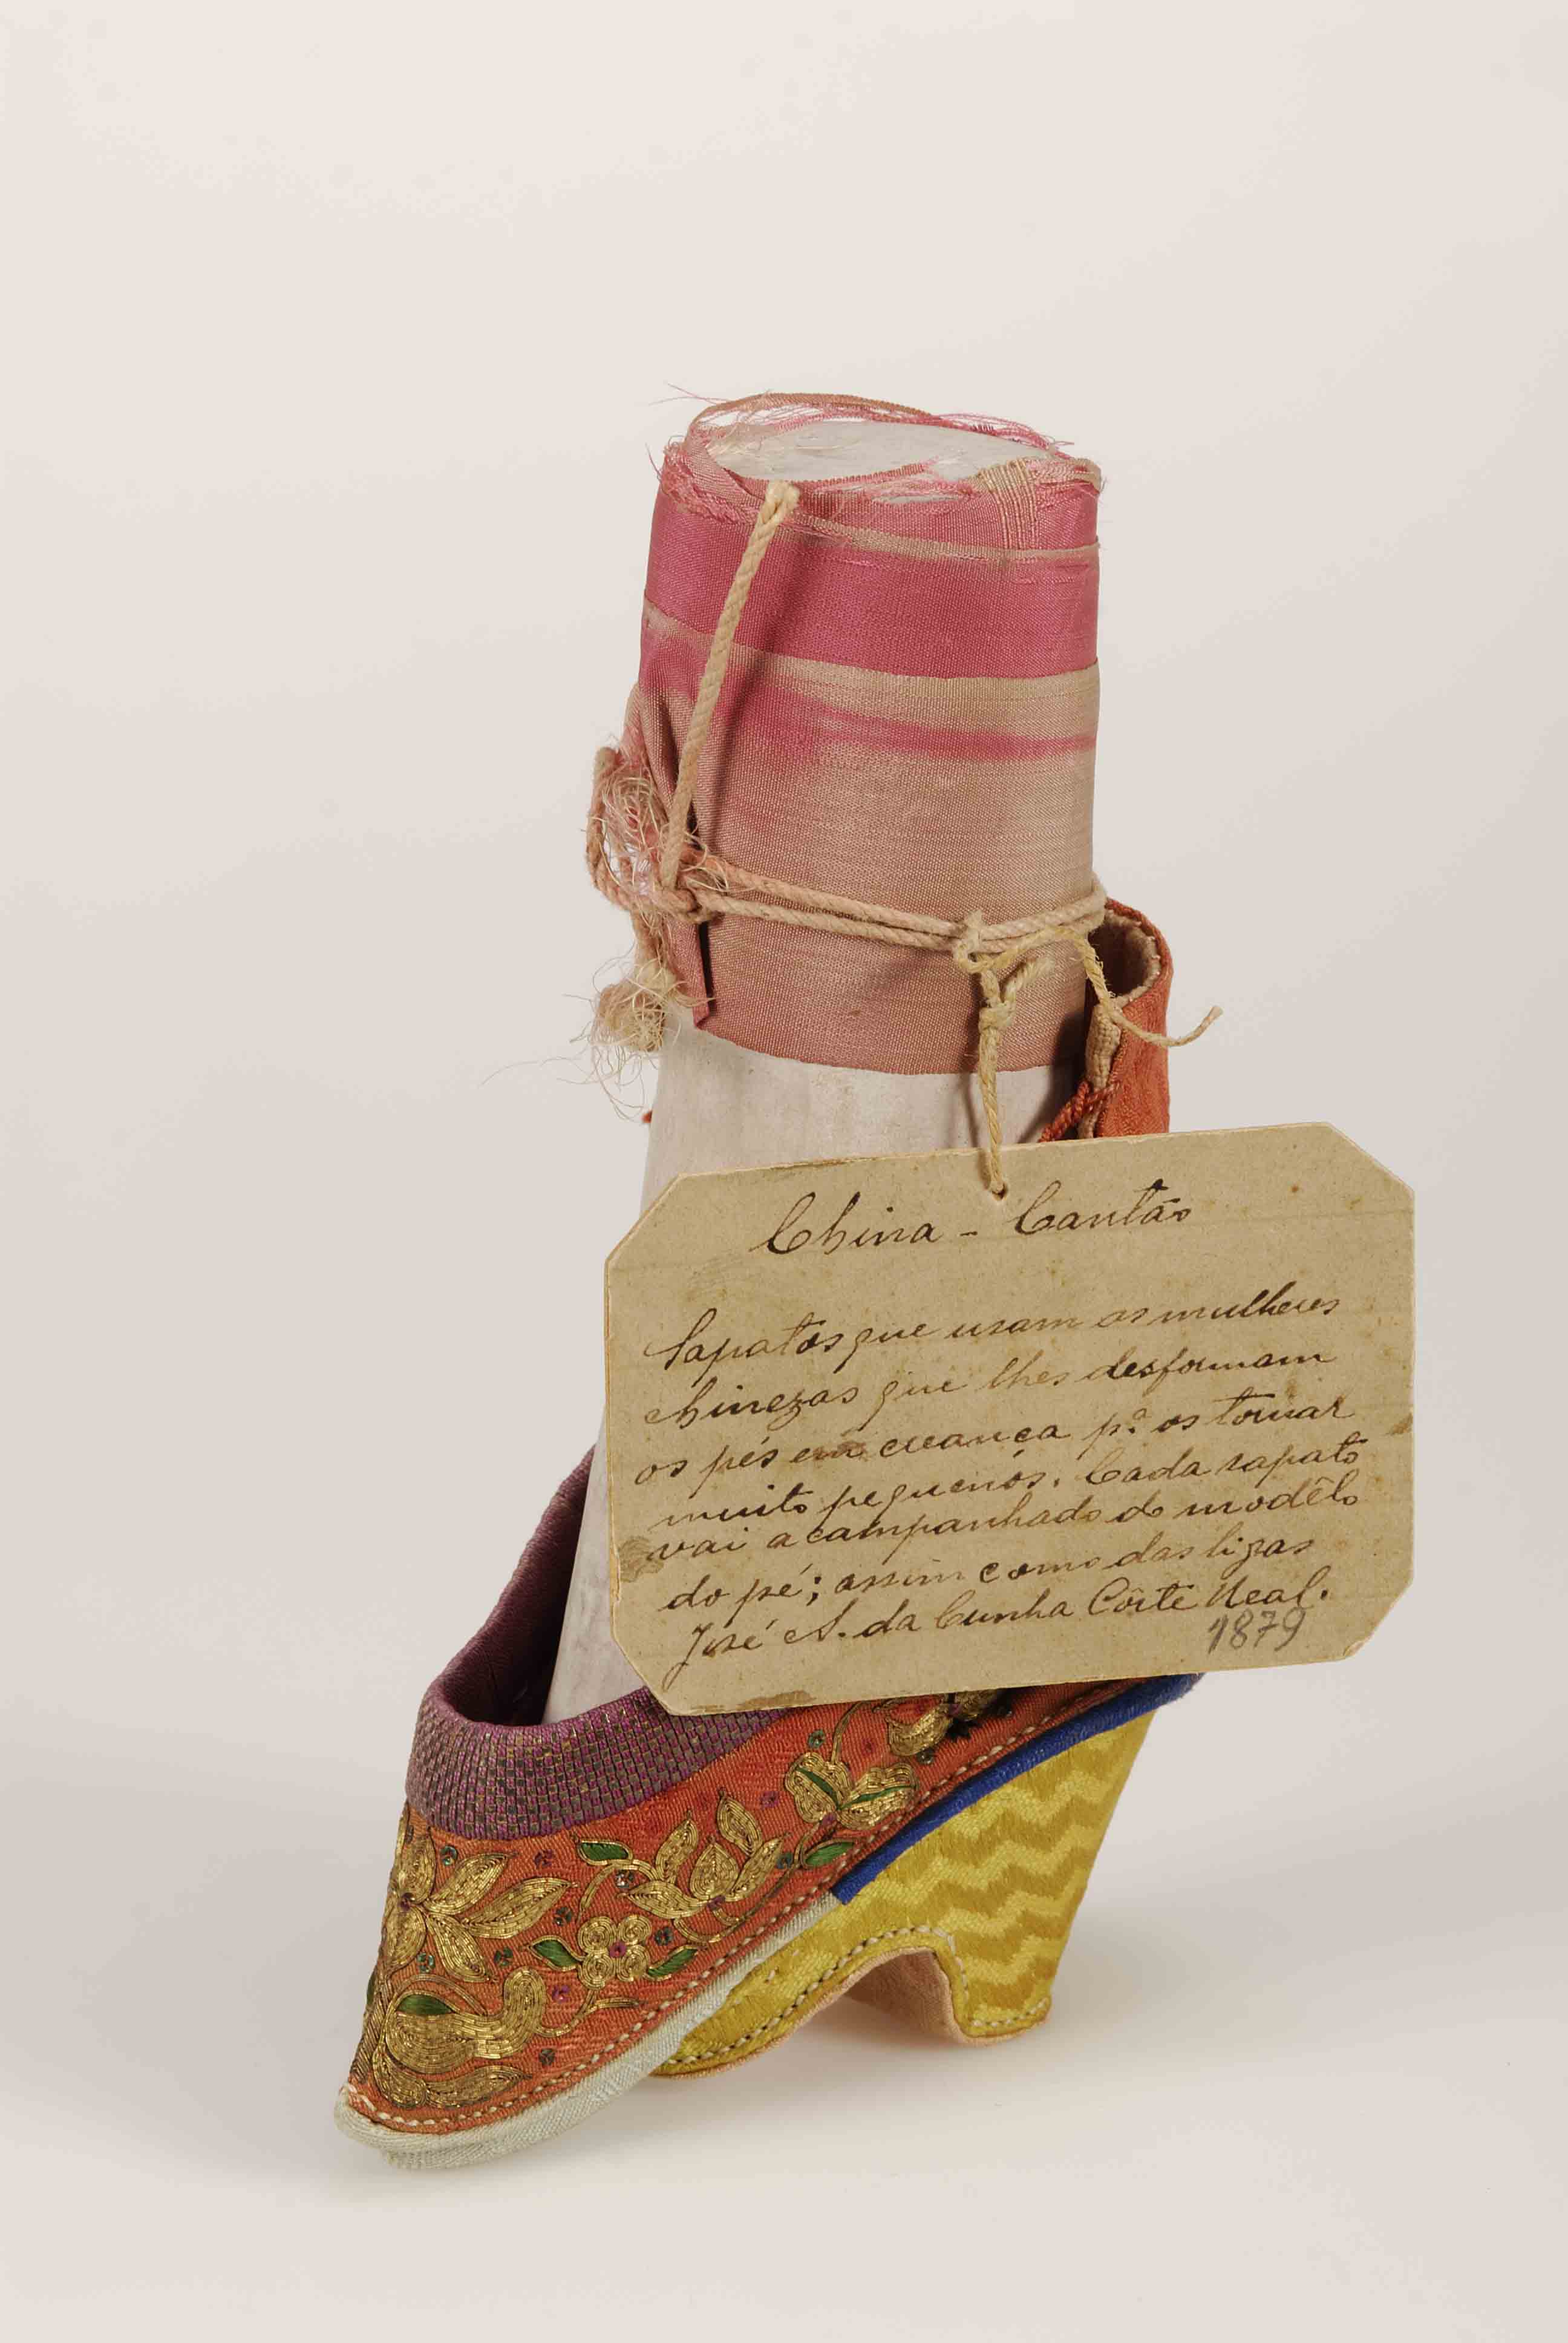 China - Cantão
Sapatos que usam as mulheres
chinezas que lhes desformam
os pés em creança p.ª os tornar
muito pequenos. Cada sapato
vai acampanhado do modêlo
do pé; assim como das ligas
José A. da Cunha Côrte Real.
1879